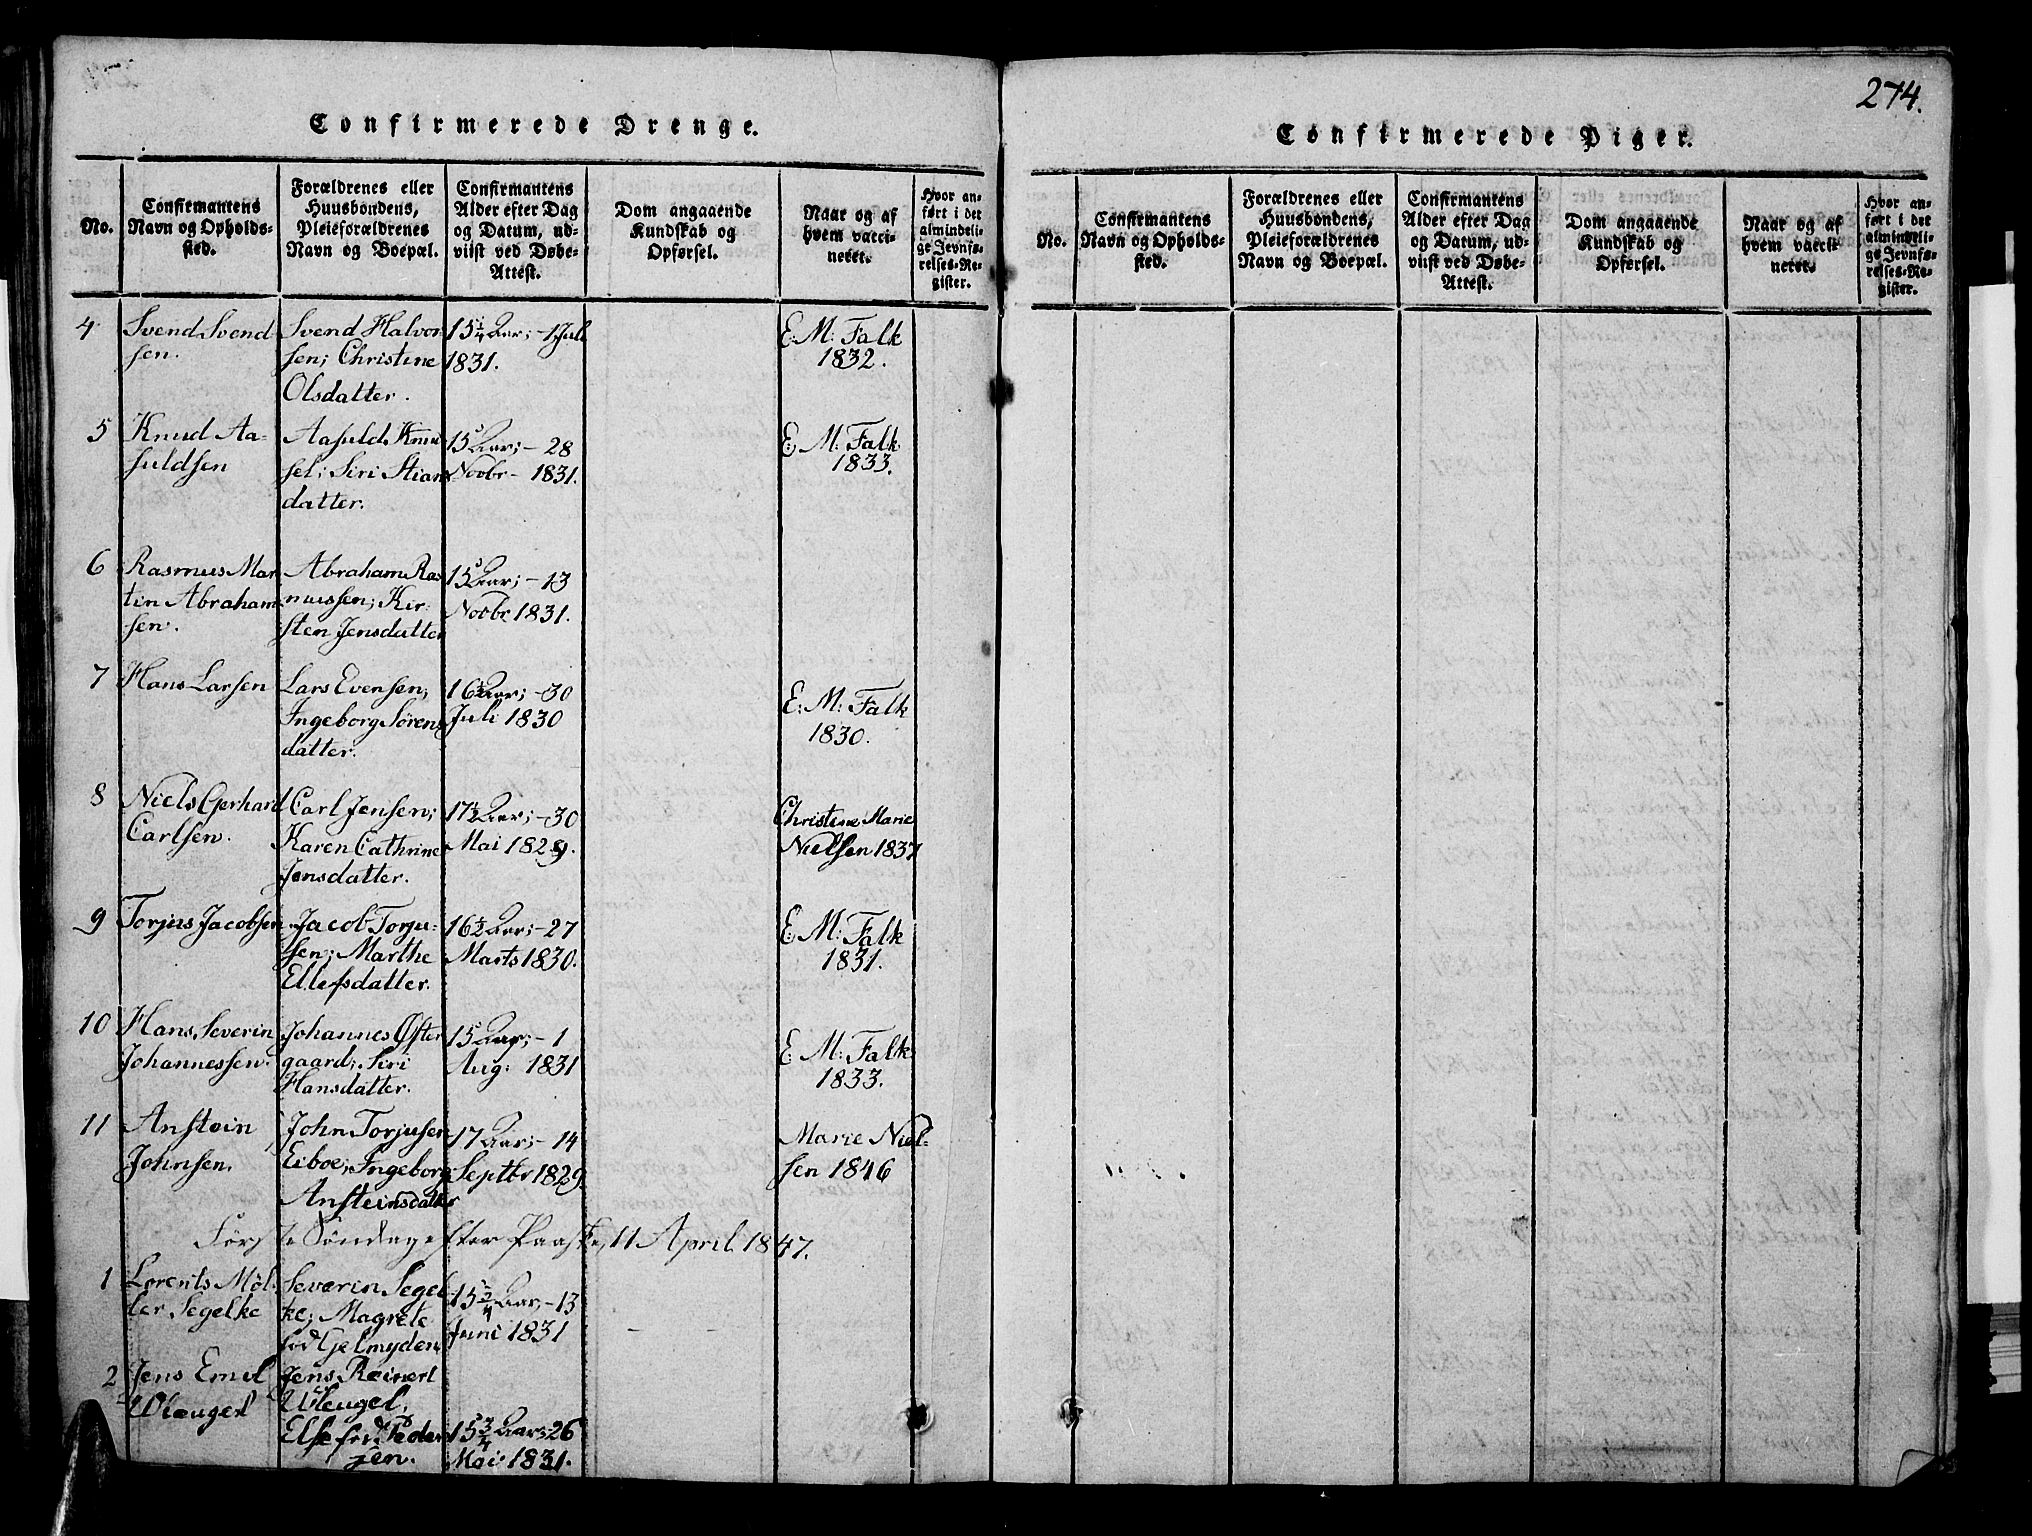 274.
Confirmerede Drenge.
No.
Confirmantens
Navn og Opholds-
sted.
Forældrenes eller
Huusbondens,
Pleieforældrenes
Navn og Boepæl.
Confirmantens
Alder efter Dag
og Datum, ud-
viist ved Døbe-
Attest.
Dom angaaende
Kundskab og
Opførsel.
Naar og af
hvem vacci-
neret.
Hvor an-
ført i det
almindeli-
ge Jevnfø-
relses-Re-
gister.
4
Svend Svend
sen.
Svend Halvor
sen; Christine
Olsdatter.
15 1/4 Aar; - 1 Juli
1831.
E. M: Falk
1832.
5
Knud Aa-
suldsen
Aasuld Knu
sel; Siri Stians
datter.
15 Aar; - 28
Novbr - 1831.
E. M: Falk
1833.
6
Rasmus Mar
tin Abraham
sen.
Abraham Ras
mussen; Kir-
sten Jensdatter
15 Aar; - 13
Novbr 1831.
7
Hans Larsen
Lars Evensen,
Ingeborg Sørens
datter.
16 Aar; - 30
Juli 1830
E: M: Falk
1830.
8
Niels Gerhard
Carlsen.
Carl Jensen;
Karen Cathrine
Jensdatter.
17 1/2 Aar; - 30
Mai 1829.
Christine Marie
Nielsen 1837
9
Torjus Jacobsen
Jacob Torju-
sen; Marthe
Ellefsdatter.
16 1/2 Aar; - 27
Marts 1830.
E. M: Falk
1831.
10
Hans Severin
Johannessen.
Johannes Øster
gaard; Siri
Hansdatter.
15 Aar; - 1
Aug: 1831
E. M: Falk
1833.
11
Anstein
Johnsen.
John Torjusen
Eiboe; Ingeborg
Ansteinsdatter
17 Aar; - 14
Septbr 1829.
Marie Niel-
sen 1846
Første Søndag efter Paaske, 11 April 1847.
1
Lorents Møl-
ler Segelke
Severin Segel
ke; Magrete
fød Gjelmyden
15 3/4 Aar, - 13
Juni 1831
2
Jens Emil
Wleugel
Jens Reinert
Wleugel,
Else fød Peder
sen.
15 3/4 Aar; 26
Mai 1831.
Confirmerede Piger.
No.
Confirmantens
Navn og Opholds-
sted.
Forældrenes eller
Huusbondens,
Pleieforældrenes
Navn og Boepæl.
Confirmantens
Alder efter Dag
og Datum, ud-
viist ved Døbe-
Attest.
Dom angaaende
Kundskab og
Opførsel.
Naar og af
hvem vacci-
neret.
Hvor an-
ført i det
almindeli-
ge Jevnfø-
relses-Re-
gister.